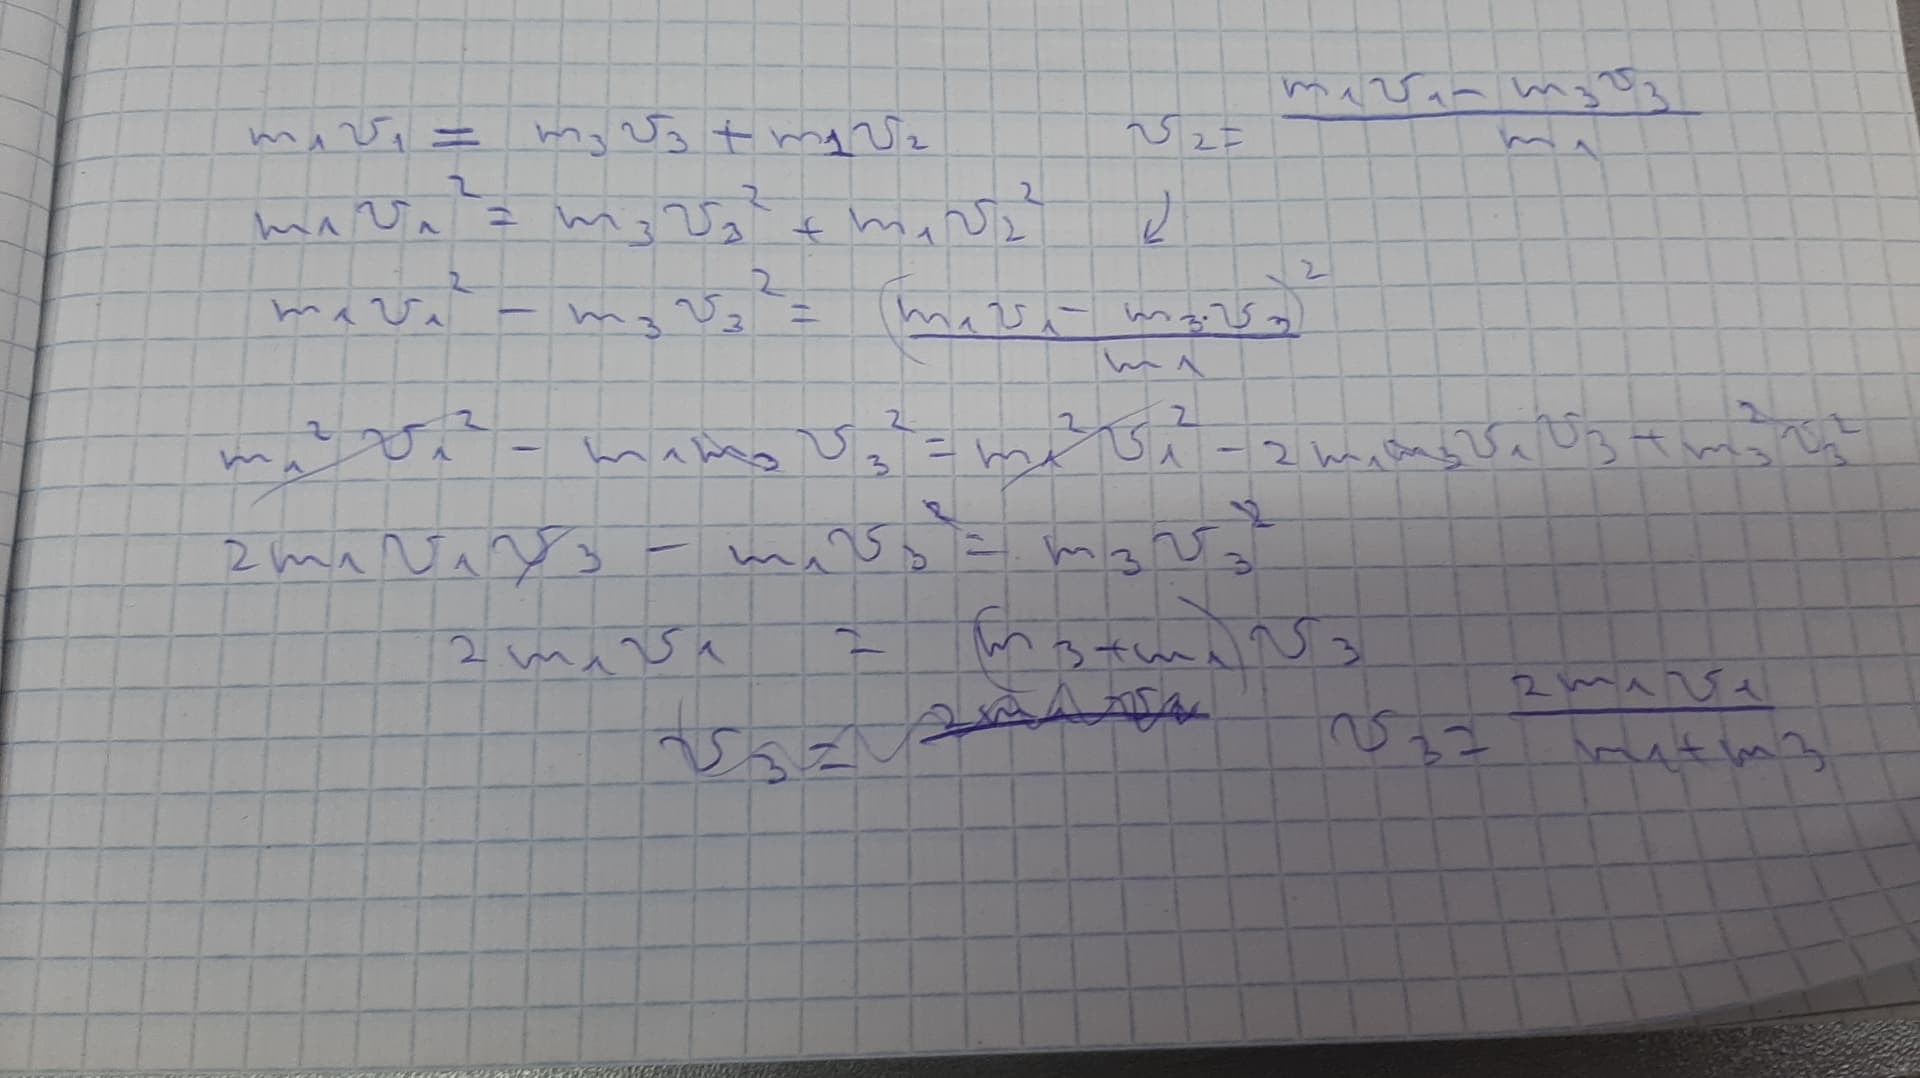 m₁v₁ = m₃v₃ + m₁v₂   v₂ = (m₁v₁ - m₃v₃)/m₁
m₁v₁² = m₃v₃² + m₁v₂²   ↙
m₁v₁² - m₃v₃² = (m₁v₁ - m₃·v₃)²/m₁
m₁²v₁² - m₁m₃v₃² = m₁²v₁² - 2m₁m₃v₁v₃ + m₃²v₃²
2m₁v₁v₃ - m₁v₃² = m₃v₃²
2m₁v₁ = (m₃+m₁)v₃
v₃ = √   v₃ = 2m₁v₁/(m₁+m₃)